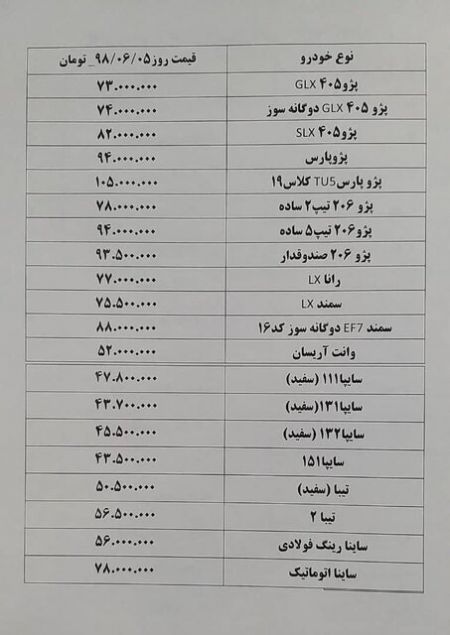 نوع خودرو قیمت روز۹۸/۰۶/۰۵_ تومان
پژو۴۰۵ GLX ۷۳.۰۰۰.۰۰۰
پژو ۴۰۵ GLX دوگانه سوز ۷۴.۰۰۰.۰۰۰
پژو۴۰۵ SLX ۸۲.۰۰۰.۰۰۰
پژوپارس ۹۴.۰۰۰.۰۰۰
پژو پارس TU5 کلاس۱۹ ۱۰۵.۰۰۰.۰۰۰
پژو ۲۰۶ تیپ۲ ساده ۷۸.۰۰۰.۰۰۰
پژو۲۰۶ تیپ۵ ساده ۹۴.۰۰۰.۰۰۰
پژو ۲۰۶ صندوقدار ۹۳.۵۰۰.۰۰۰
رانا LX ۷۷.۰۰۰.۰۰۰
سمند LX ۷۵.۵۰۰.۰۰۰
سمند EF7 دوگانه سوز کد۱۶ ۸۸.۰۰۰.۰۰۰
وانت آریسان ۵۲.۰۰۰.۰۰۰
سایپا۱۱۱ (سفید) ۴۷.۸۰۰.۰۰۰
سایپا۱۳۱(سفید) ۴۳.۷۰۰.۰۰۰
سایپا۱۳۲ (سفید) ۴۵.۵۰۰.۰۰۰
سایپا۱۵۱ ۴۳.۵۰۰.۰۰۰
تیبا (سفید) ۵۰.۵۰۰.۰۰۰
تیبا ۲ ۵۶.۵۰۰.۰۰۰
ساینا رینگ فولادی ۵۶.۰۰۰.۰۰۰
ساینا اتوماتیک ۷۸.۰۰۰.۰۰۰